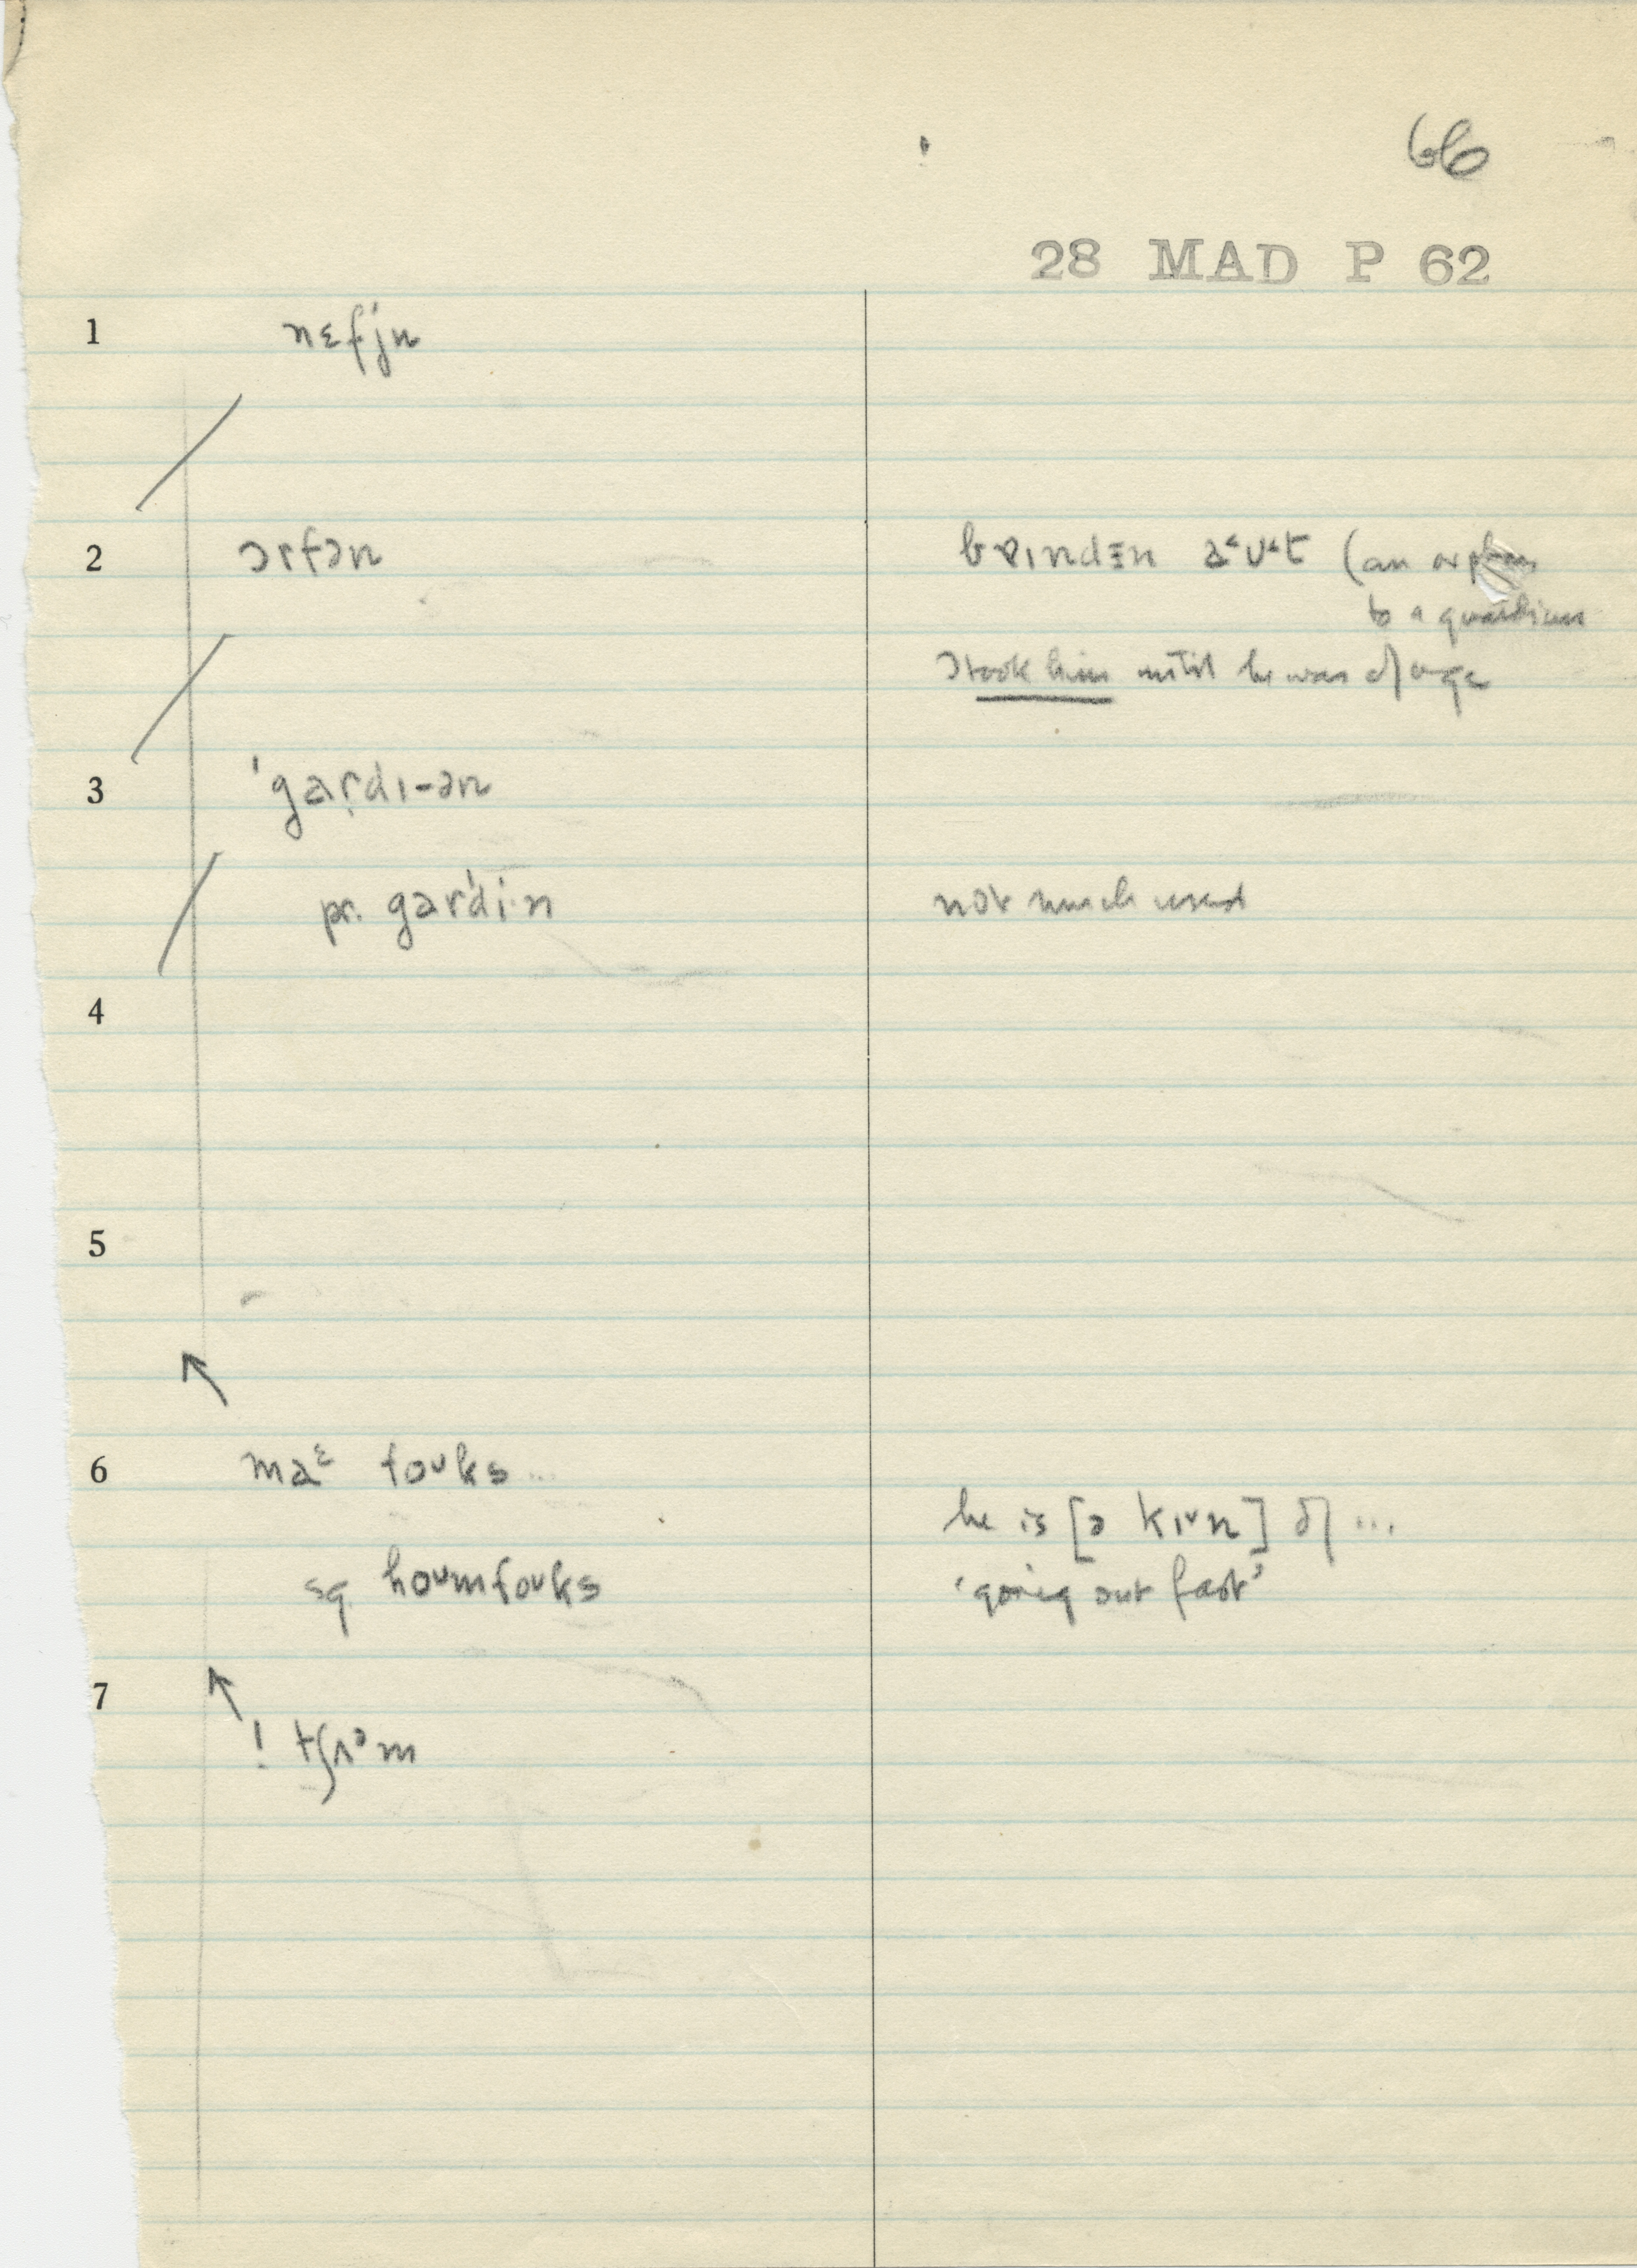 66
28 MAD P 62
1 nɛfju
2 ɔrfən bɐɪndɜn a˂ʊ˂t (an orphan
to a guardian
I took him until he was of age
3 'gaṛdɪ-ən
pr. gar'di·n not much used
4
5
6 maᵋ foʊks ...
he is [ə kɪ˅n] of ...
sq. hoʊmfoʊks 'going out fast'
7
! tʃʌᵊm